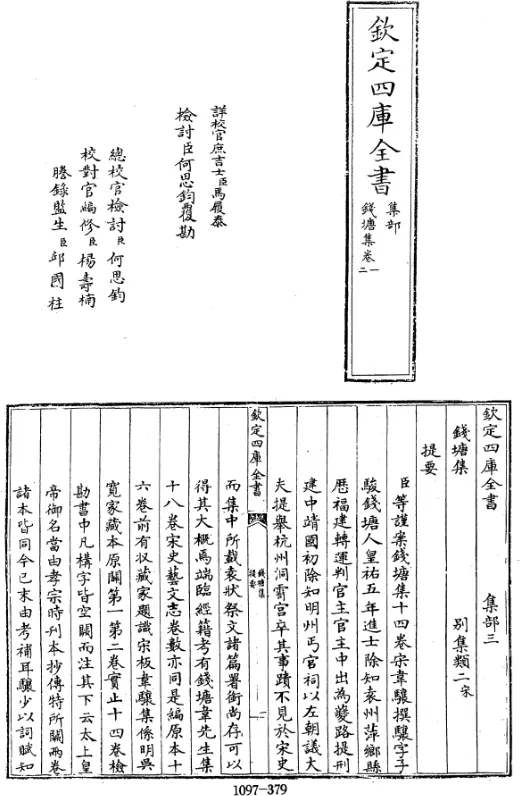 欽定四庫全書
集部
錢塘集卷一
二
詳校官庶吉士臣馬履泰
檢討臣何思鈞覆勘
總校官檢討臣何思鈞
校對官編修臣楊壽楠
謄錄監生臣邱國柱
欽定四庫全書 集部三
錢塘集 別集類二宋
提要
臣等謹案錢塘集十四卷宋韋驤撰驤字子
駿錢塘人皇祐五年進士除知袁州萍鄉縣
歷福建轉運判官主官主中出為夔路提刑
建中靖國初除知明州丐官祠以左朝議大
夫提舉杭州洞霄宮卒其事蹟不見於宋史
而集中所載表狀祭文諸篇署銜尚存可以
欽定四庫全書
錢塘集
提要
一
得其大概馬端臨經籍考有錢塘韋先生集
十八卷宋史藝文志卷數亦同是編原本十
六卷前有収藏家題識宋板韋驤集係明吳
寬家藏本原闕第一第二卷實止十四卷檢
勘書中凡構字皆空闕而注其下云太上皇
帝御名當由孝宗時刊本抄傳特所闕兩卷
諸本皆同今已末由考補耳驤少以詞賦知
1097-379